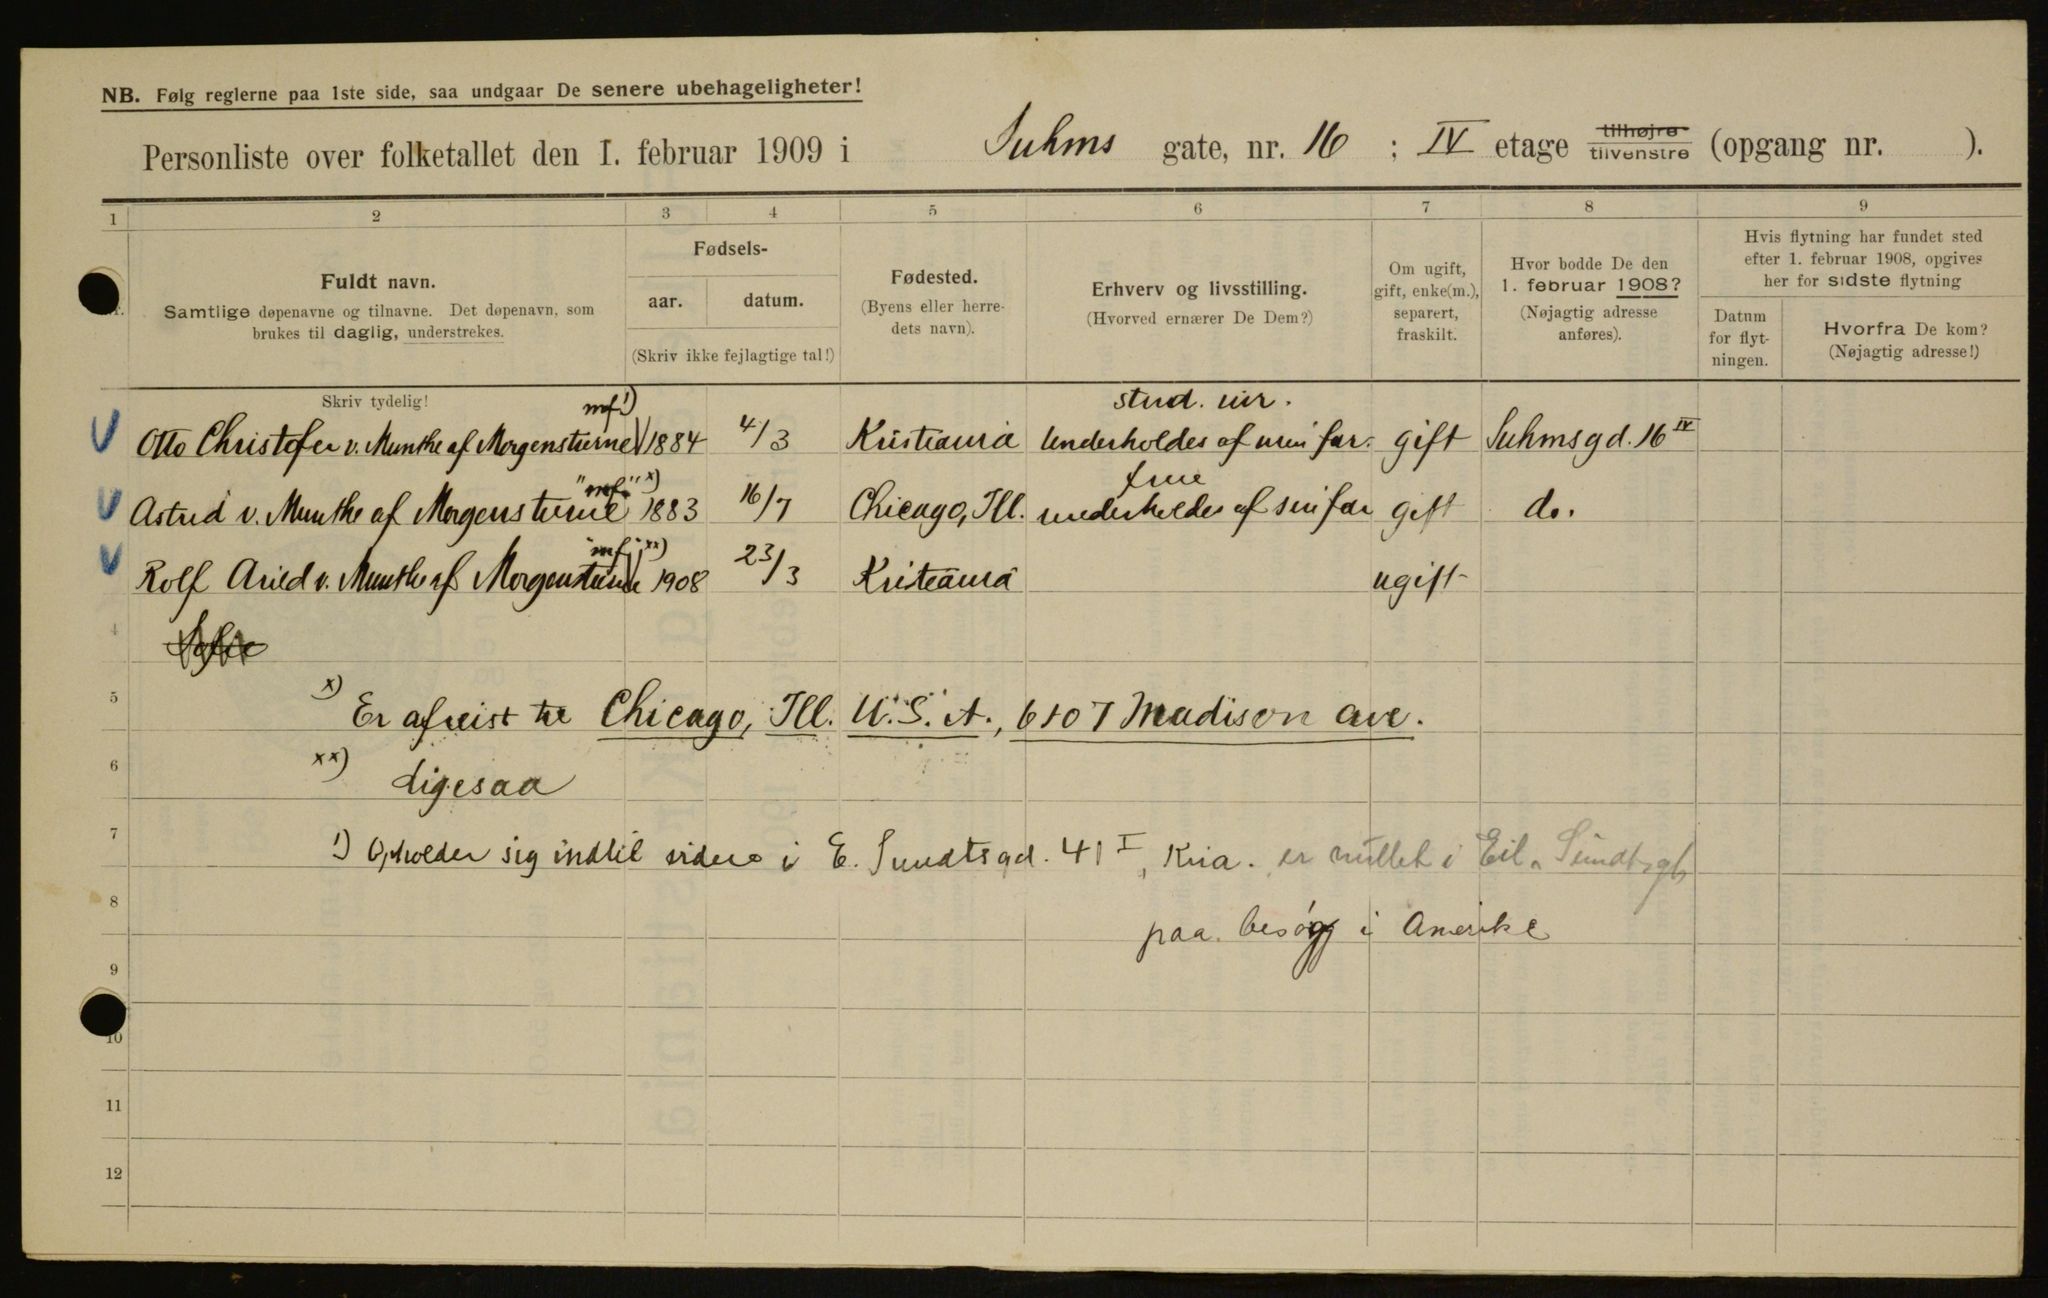 NB. Følg reglerne paa 1ste side, saa undgaar De senere ubehageligheter!
Personliste over folketallet den 1. februar 1909 i Suhms gate, nr. 16 ; IV etage tilhøjre tilvenstre (opgang nr. ).
1 2 3 4 5 6 7 8 9
Fuldt navn.
Samtlige døpenavne og tilnavne. Det døpenavn, som
brukes til daglig, understrekes.
Skriv tydelig!
Fødsels-
aar. datum.
(Skriv ikke fejlagtige tal!)
Fødested.
(Byens eller herre-
dets navn).
Erhverv og livsstilling.
(Hvorved ernærer De Dem?)
Om ugift,
gift, enke(m.),
separert,
fraskilt.
Hvor bodde De den
1. februar 1908?
(Nøjagtig adresse
anføres).
Hvis flytning har fundet sted
efter 1. februar 1908, opgives
her for sidste flytning
Datum
for flyt-
ningen.
Hvorfra De kom?
(Nøjagtig adresse!)
mf. 1) stud.
Otto Christofer v. Munthe af Morgenstierne 1884 4/3 Kristiania Underholdes af min far. gift Suhmsgd. 16 IV
"mf." x) frue
Astrid v. Munthe af Morgenstierne 1883 16/7 Chicago, Ill. underholdes af sin far gift do.
"mf." xx)
Rolf Arild v. Munthe af Morgenstierne 1908 23/3 Kristiania ugift
4
5 x) Er afreist til Chicago, Ill. U.S.A., 6107 Madison ave.
6 xx) Ligesaa
7 1) Opholder sig indtil videre i E. Sundtsgd. 41 I, Kria. er nittet i Eil. Sundtsgt
8 paa besøg i Amerika
9
10
11
12